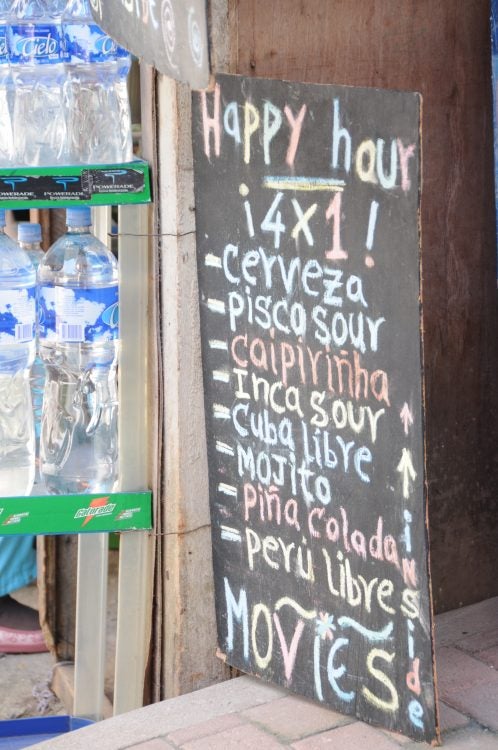 Happy hour
¡4x1!
-Cerveza
-pisco sour
-caipiriñha
-Inca sour
-Cuba libre
-Mojito
-piña colada
-perú libre
Movies
inside
Cielo
POWERADE
POWERADE
Gatorade